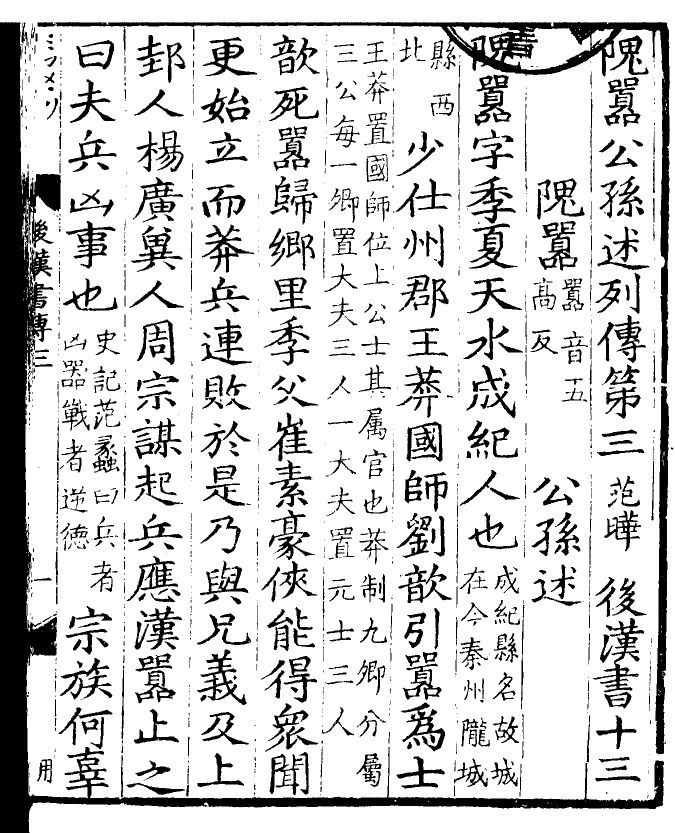 隗囂公孫述列傳第三　范曄　後漢書十三
隗囂囂音五高反　公孫述
隗囂字季夏天水成紀人也成紀縣名故城在今秦州隴城
縣西北少仕州郡王莽國師劉歆引囂爲士
王莽置國師位上公士其属官也莽制九卿分屬三公每一卿置大夫三人一大夫置元士三人
歆死囂歸鄉里季父崔素豪俠能得衆聞
更始立而莽兵連敗於是乃與兄義及上
邽人楊廣冀人周宗謀起兵應漢囂止之
曰夫兵凶事也史記范蠡曰兵者凶器戰者逆德宗族何辜
後漢書傳三　一
用